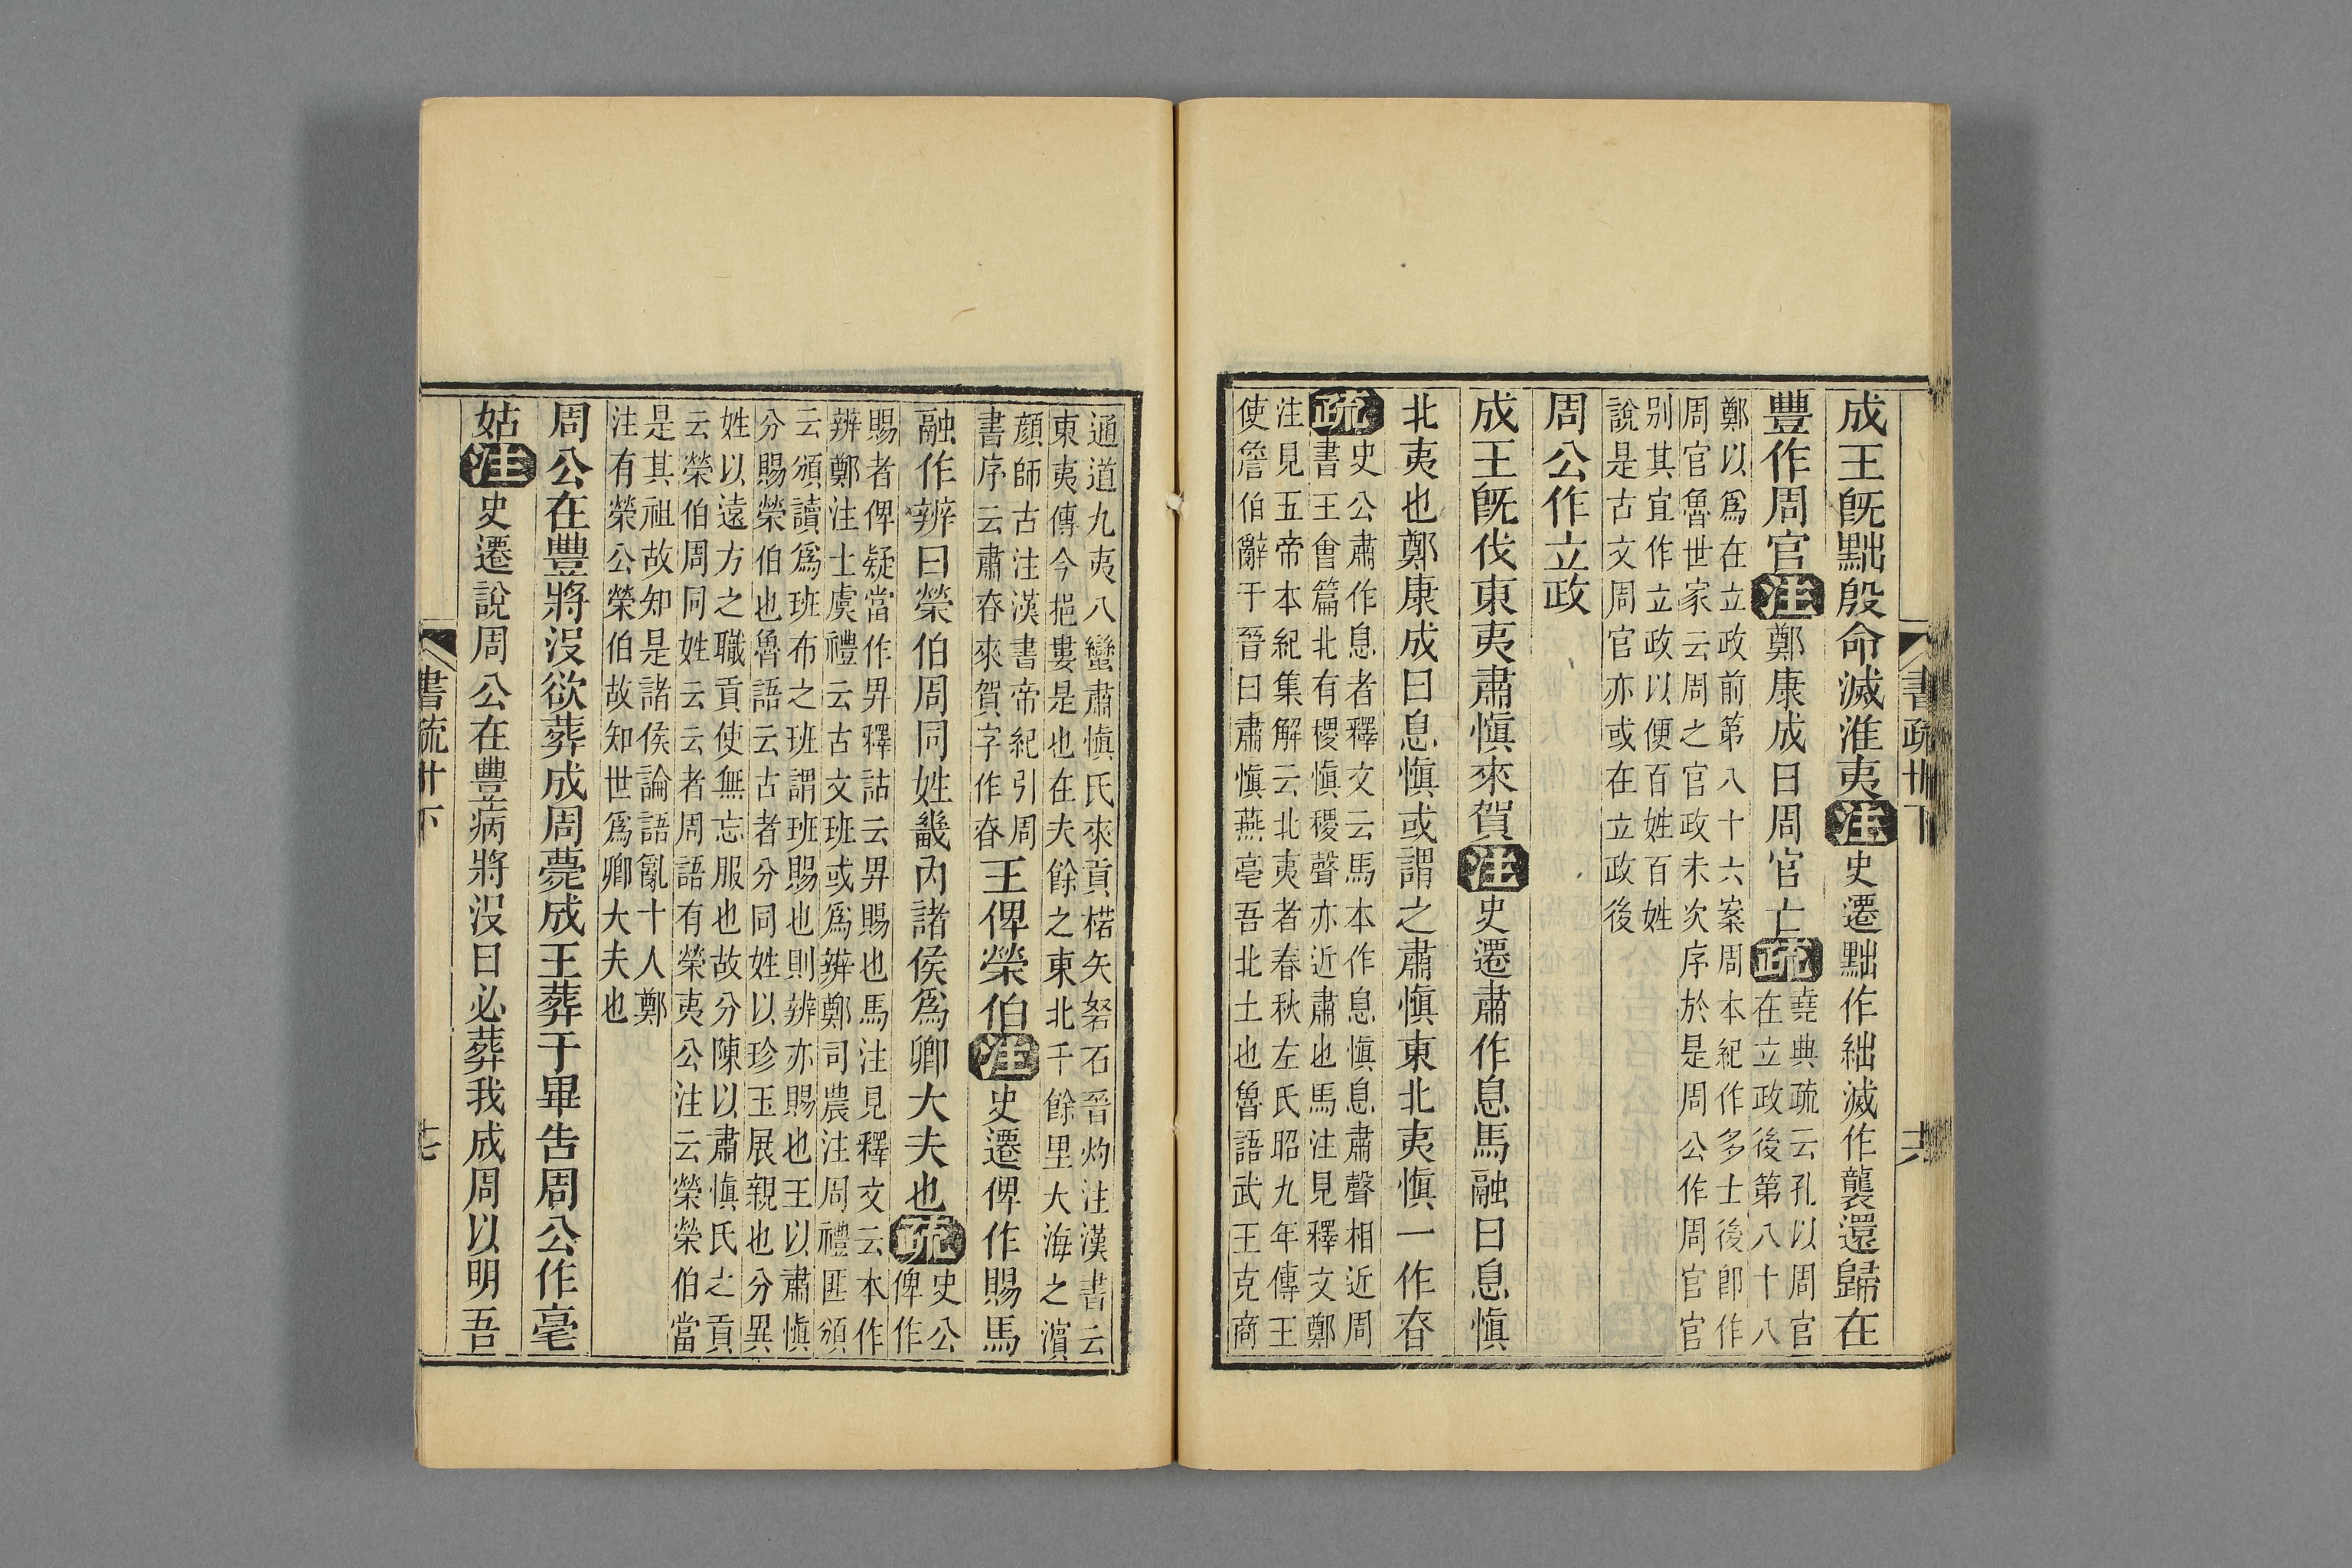 書疏卅下
成王旣黜殷命滅淮夷注史遷黜作絀滅作襲還歸在
豐作周官注鄭康成曰周官亡疏
堯典疏云孔以周官
在立政後第八十八
鄭以爲在立政前第八十六案周本紀作多士後卽作
周官魯世家云周之官政未次序於是周公作周官官
別其宜作立政以便百姓百姓
說是古文周官亦或在立政後
周公作立政
成王旣伐東夷肅愼來賀注史遷肅作息馬融曰息愼
北夷也鄭康成曰息愼或謂之肅愼東北夷愼一作昚
疏
史公肅作息者釋文云馬本作息愼息肅聲相近周
書王會篇北有稷愼稷聲亦近肅也馬注見釋文鄭
注見五帝本紀集解云北夷者春秋左氏昭九年傳王
使詹伯辭于晉曰肅愼燕亳吾北土也魯語武王克商
通道九夷八蠻肅愼氏來貢楛矢砮石晉灼注漢書云
東夷傳今挹婁是也在夫餘之東北千餘里大海之濵
顔師古注漢書帝紀引周
書序云肅昚來賀字作昚
王俾榮伯注史遷俾作賜馬
融作辨曰榮伯周同姓畿內諸侯爲卿大夫也疏
史公
俾作
賜者俾疑當作畀釋詁云畀賜也馬注見釋文云本作
辨鄭注士虞禮云古文班或爲辨鄭司農注周禮匪頒
云頒讀爲班布之班謂班賜也則辨亦賜也王以肅愼
分賜榮伯也魯語云古者分同姓以珍玉展親也分異
姓以遠方之職貢使無忘服也故分陳以肅愼氏之貢
云榮伯周同姓云云者周語有榮夷公注云榮榮伯當
是其祖故知是諸侯論語亂十人鄭
注有榮公榮伯故知世爲卿大夫也
周公在豐將沒欲葬成周薨成王葬于畢吿周公作亳
姑注史遷說周公在豐病將沒曰必葬我成周以明吾
書疏卅下